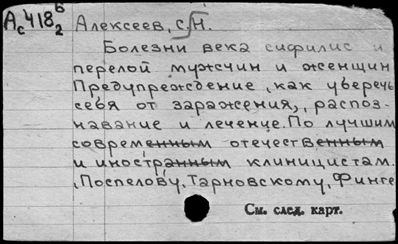 Ас418⁶₂ Алексеев, с.Н.
Болезни века сифилис и
перелой мужчин и женщин
Предупреждение, как уверечь
себя от заражения, распоз-
навание и леченце. По лучшим
современным отечественным
и иностранным клиницистам.
Поспелову, Тарновскому, Финге
См. след. карт.